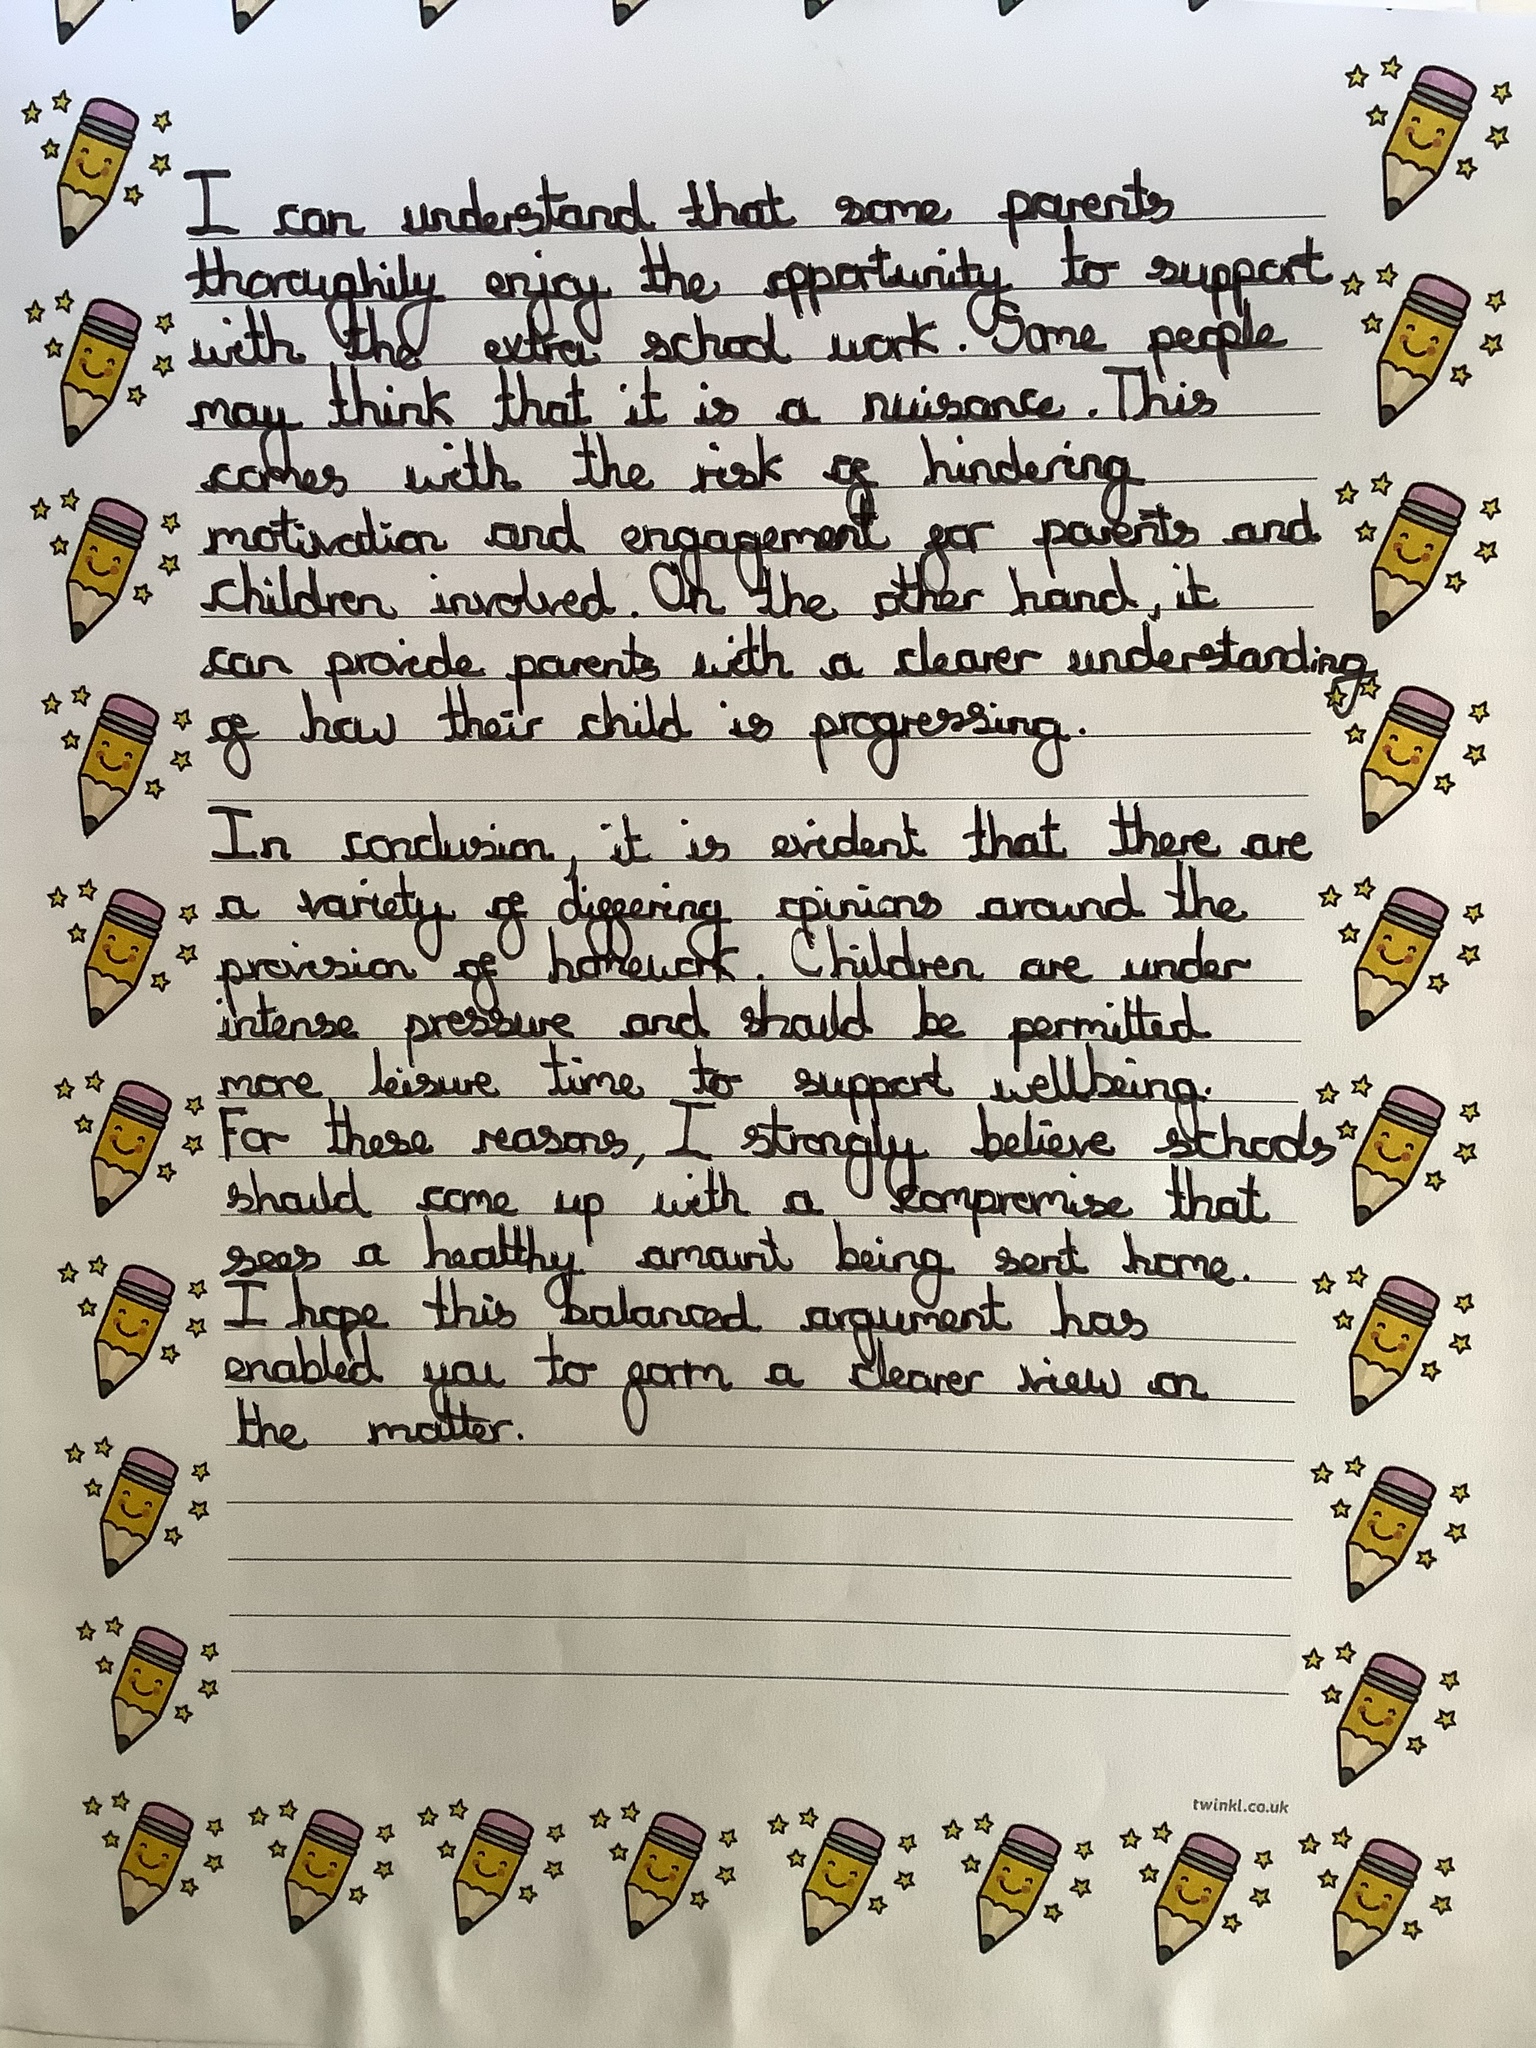 I can understand that some parents
thoroughily enjoy the opportunity to support
with the extra school work. Some people
may think that it is a nuisance. This
comes with the risk of hindering
motivation and engagement for parents and
children involved. On the other hand, it
can provide parents with a clearer understanding
of how their child is progressing.
In conclusion, it is evident that there are
a variety of differing opinions around the
provision of homework. Children are under
intense pressure and should be permitted
more leisure time to support wellbeing.
For these reasons, I strongly believe schools
should come up with a compromise that
sees a healthy amount being sent home.
I hope this balanced argument has
enabled you to form a clearer view on
the matter.
twinkl.co.uk